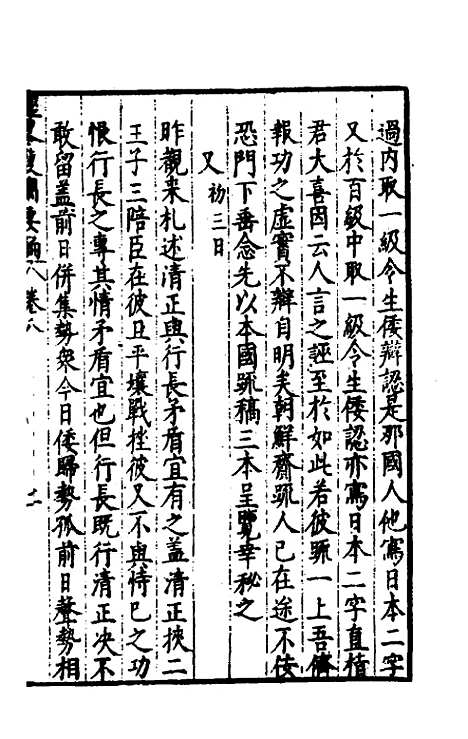 過內取一級令生倭辯認是那國人他寫日本二字
又於百級中取一級令生倭認亦寫日本二字直楂
君大喜因云人言之誣至於如此若彼疏一上吾儕
報功之虛實不辯自明矣朝鮮齎疏人已在途不佞
恐門下垂念先以本國疏稿三本呈覽幸秘之
又 初三日
昨觀來札述清正與行長矛盾宜有之蓋清正挾二
王子三陪臣在彼且平壤戰挫彼又不與恃己之功
恨行長之專其情矛盾宜也但行長既行清正決不
敢留蓋前日併集勢衆今日倭歸勢孤前日聲勢相
經略復國要編 卷六